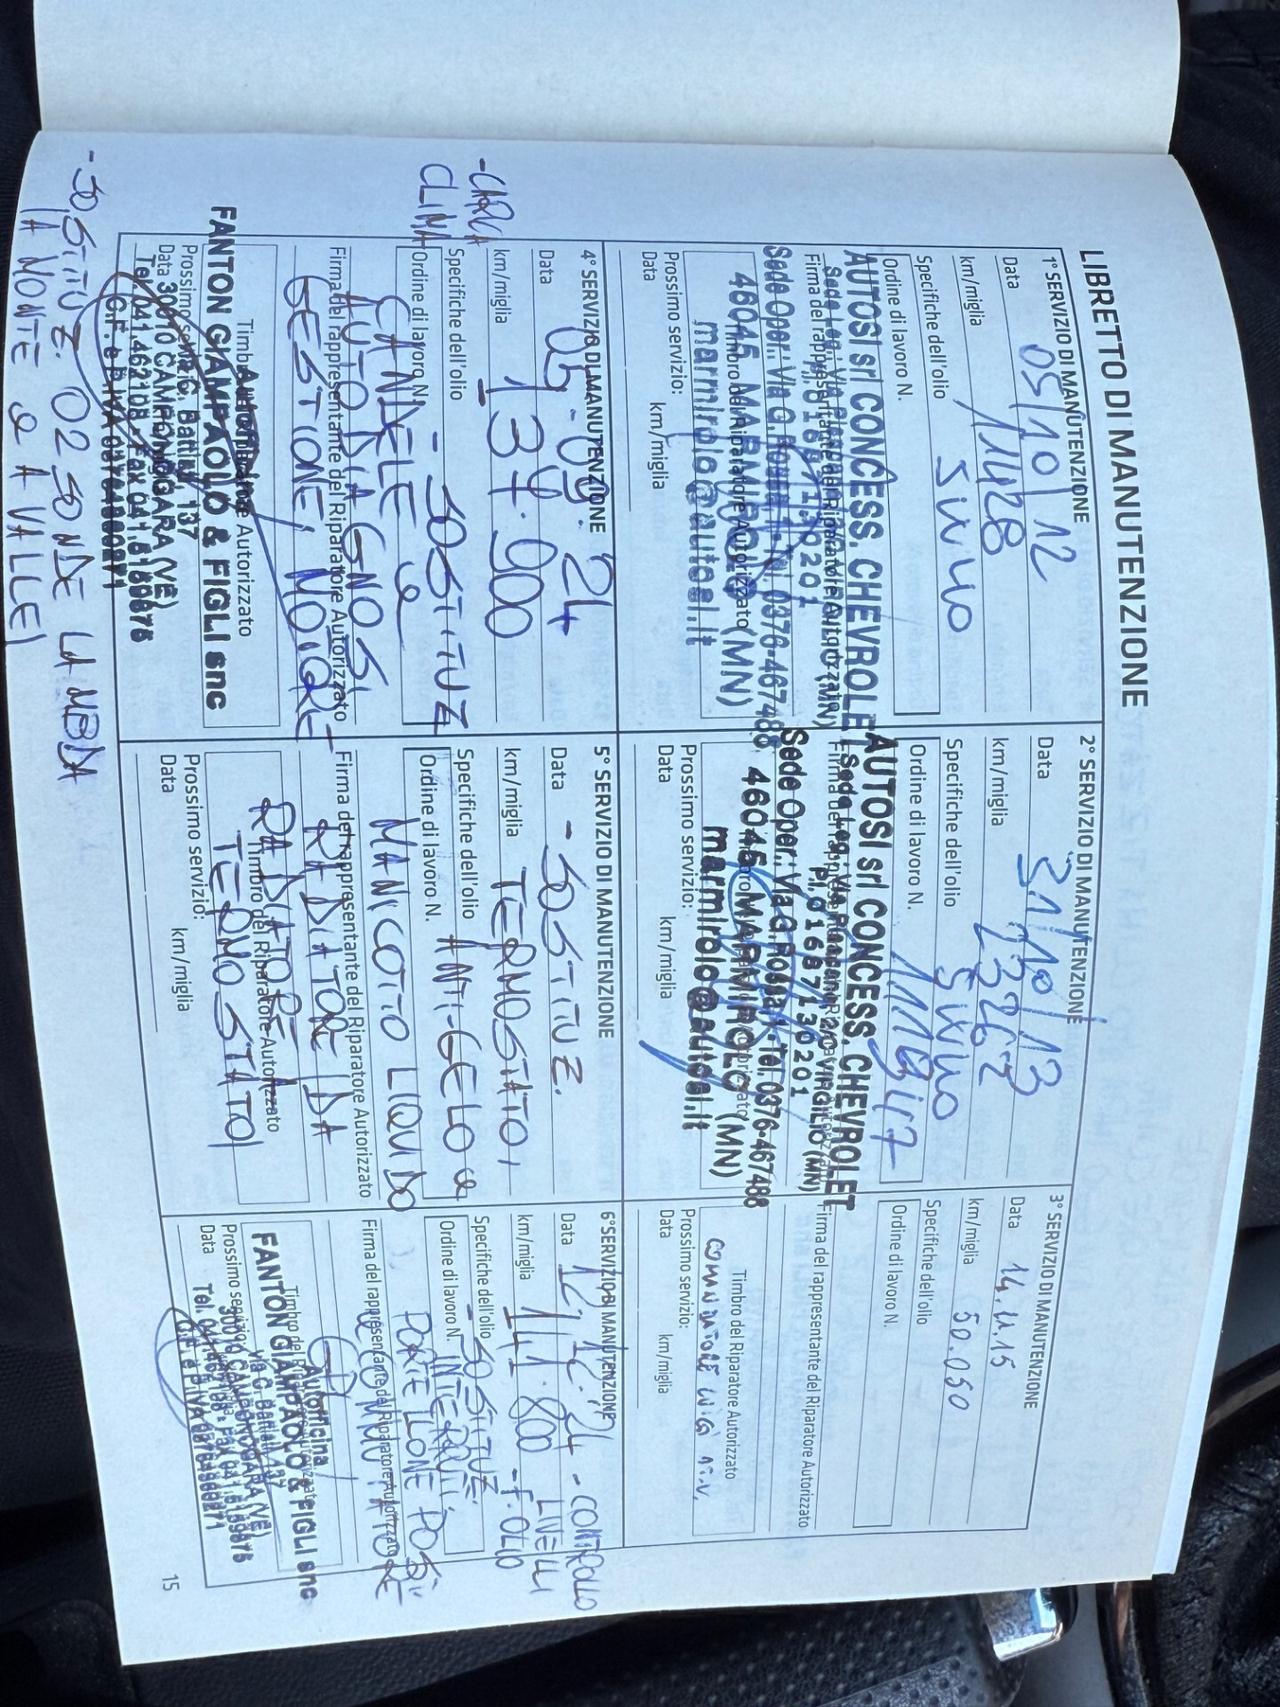 LIBRETTO DI MANUTENZIONE
1° SERVIZIO DI MANUTENZIONE
Data 05/10/12
km/miglia 11428
Specifiche dell'olio
Ordine di lavoro N.
AUTOSI srl CONCESS. CHEVROLET
Firma del rappresentante del Riparatore Autorizzato
Sede Oper.: Via G. Tel. 0376-467488
46045 MARMIROLO (MN)
Timbro del Riparatore Autorizzato
marmirolo@autosi.it
Prossimo servizio:
Data km/miglia
2° SERVIZIO DI MANUTENZIONE
Data 31/10/13
km/miglia
Specifiche dell'olio
Ordine di lavoro N.
AUTOSI srl CONCESS. CHEVROLET
P.I. 01687130201
Sede Oper.: Via G. Tel. 0376-467488
46045 MARMIROLO (MN)
marmirolo@autosi.it
Prossimo servizio:
Data km/miglia
3° SERVIZIO DI MANUTENZIONE
Data 14.11.15
km/miglia 50.050
Specifiche dell'olio
Ordine di lavoro N.
Firma del rappresentante del Riparatore Autorizzato
Timbro del Riparatore Autorizzato
Prossimo servizio:
Data km/miglia
4° SERVIZIO DI MANUTENZIONE
Data 05.09.24
km/miglia 137.900
- CARICA
CLIMA
Specifiche dell'olio - SOSTITUZ
Ordine di lavoro N. CANDELE e
AUTODIAGNOSI
Firma del rappresentante del Riparatore Autorizzato
GESTIONE MOTORE
Timbro Autorizzato
Autofficina
FANTON GIAMPAOLO & FIGLI snc
Via G. Battisti, 137
Prossimo servizio:
Data 30010 CAMPONOGARA (VE)
Tel. 041.462108 - Fax 041.5159875
C.F. e P.IVA 03764860271
- SOSTITUZ. 02 SONDE LAMBDA
(A MONTE e A VALLE)
5° SERVIZIO DI MANUTENZIONE
Data - SOSTITUZ.
km/miglia TERMOSTATO,
Specifiche dell'olio ANTI-GELO e
Ordine di lavoro N.
MANICOTTO LIQUIDO
Firma del rappresentante del Riparatore Autorizzato
RADIATORE (DA
RADIATORE A
Timbro del Riparatore Autorizzato
TERMOSTATO)
Prossimo servizio:
Data km/miglia
6° SERVIZIO DI MANUTENZIONE
Data 12.12.24 - CONTROLLO
LIVELLI
km/miglia 141.800 - F. OLIO
Specifiche dell'olio - SOSTITUZ.
Ordine di lavoro N. INTERRUTT.
PORTELLONE POST.
Firma del rappresentante del Riparatore Autorizzato
Autofficina
FANTON GIAMPAOLO & FIGLI snc
Via G. Battisti, 137
Prossimo servizio:
30010 CAMPONOGARA (VE)
Data Tel. 041.462108 - Fax 041.5159875
C.F. e P.IVA 03764860271
15